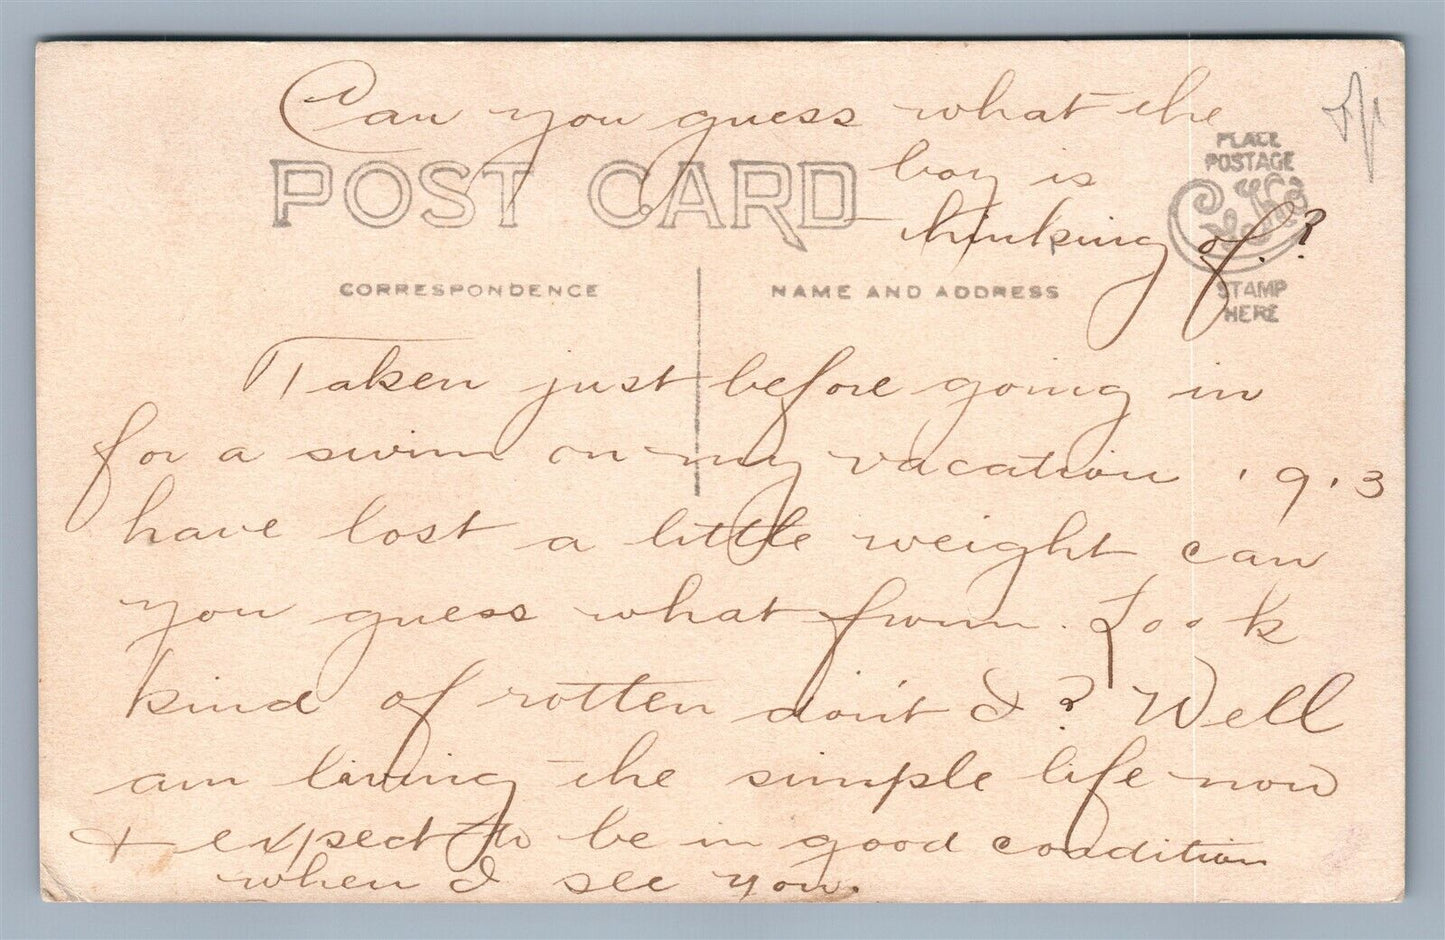 Can you guess what the
boy is
thinking of?
POST CARD
PLACE
POSTAGE
STAMP
HERE
CORRESPONDENCE
NAME AND ADDRESS
Taken just before going in
for a swim on my vacation, 1913
have lost a little weight can
you guess what from. Look
kind of rotten don't I? Well
am living the simple life now
& expect to be in good condition
when I see you.